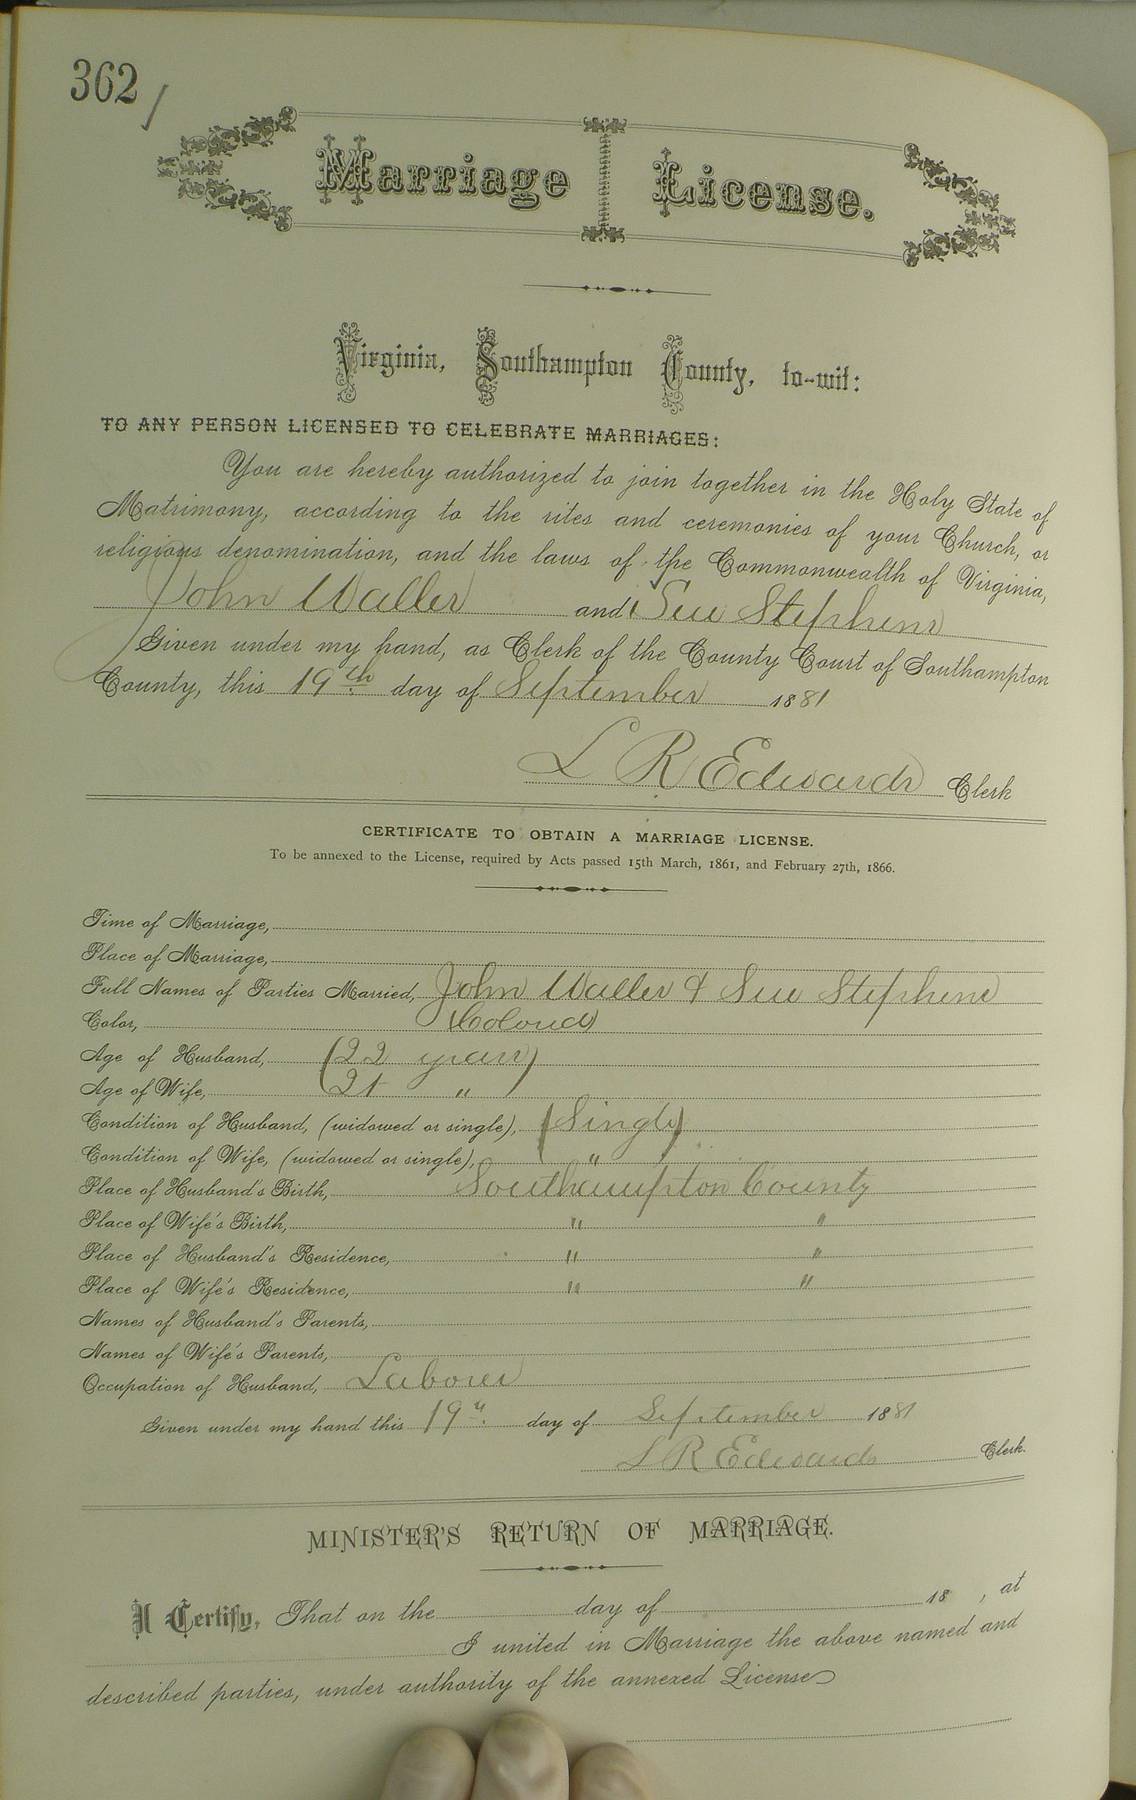 362
Marriage License.
Virginia, Southampton County, to-wit:
TO ANY PERSON LICENSED TO CELEBRATE MARRIAGES:
You are hereby authorized to join together in the Holy State of
Matrimony, according to the rites and ceremonies of your Church, or
religious denomination, and the laws of the Commonwealth of Virginia,
John Waller and Sue Stephens
Given under my hand, as Clerk of the County Court of Southampton
County, this 19th day of September 1881
L R Edwards Clerk
CERTIFICATE TO OBTAIN A MARRIAGE LICENSE.
To be annexed to the License, required by Acts passed 15th March, 1861, and February 27th, 1866.
Time of Marriage,
Place of Marriage,
Full Names of Parties Married, John Waller & Sue Stephens
Color, (Colored)
Age of Husband, (22 years)
Age of Wife, (21 "
Condition of Husband, (widowed or single), (Single)
Condition of Wife, (widowed or single), "
Place of Husband's Birth, Southampton County
Place of Wife's Birth, " "
Place of Husband's Residence, " "
Place of Wife's Residence, " "
Names of Husband's Parents,
Names of Wife's Parents,
Occupation of Husband, Laborer
Given under my hand this 19th day of September 1881
L R Edwards Clerk.
MINISTER'S RETURN OF MARRIAGE.
I Certify, That on the day of 18 , at
I united in Marriage the above named and
described parties, under authority of the annexed License